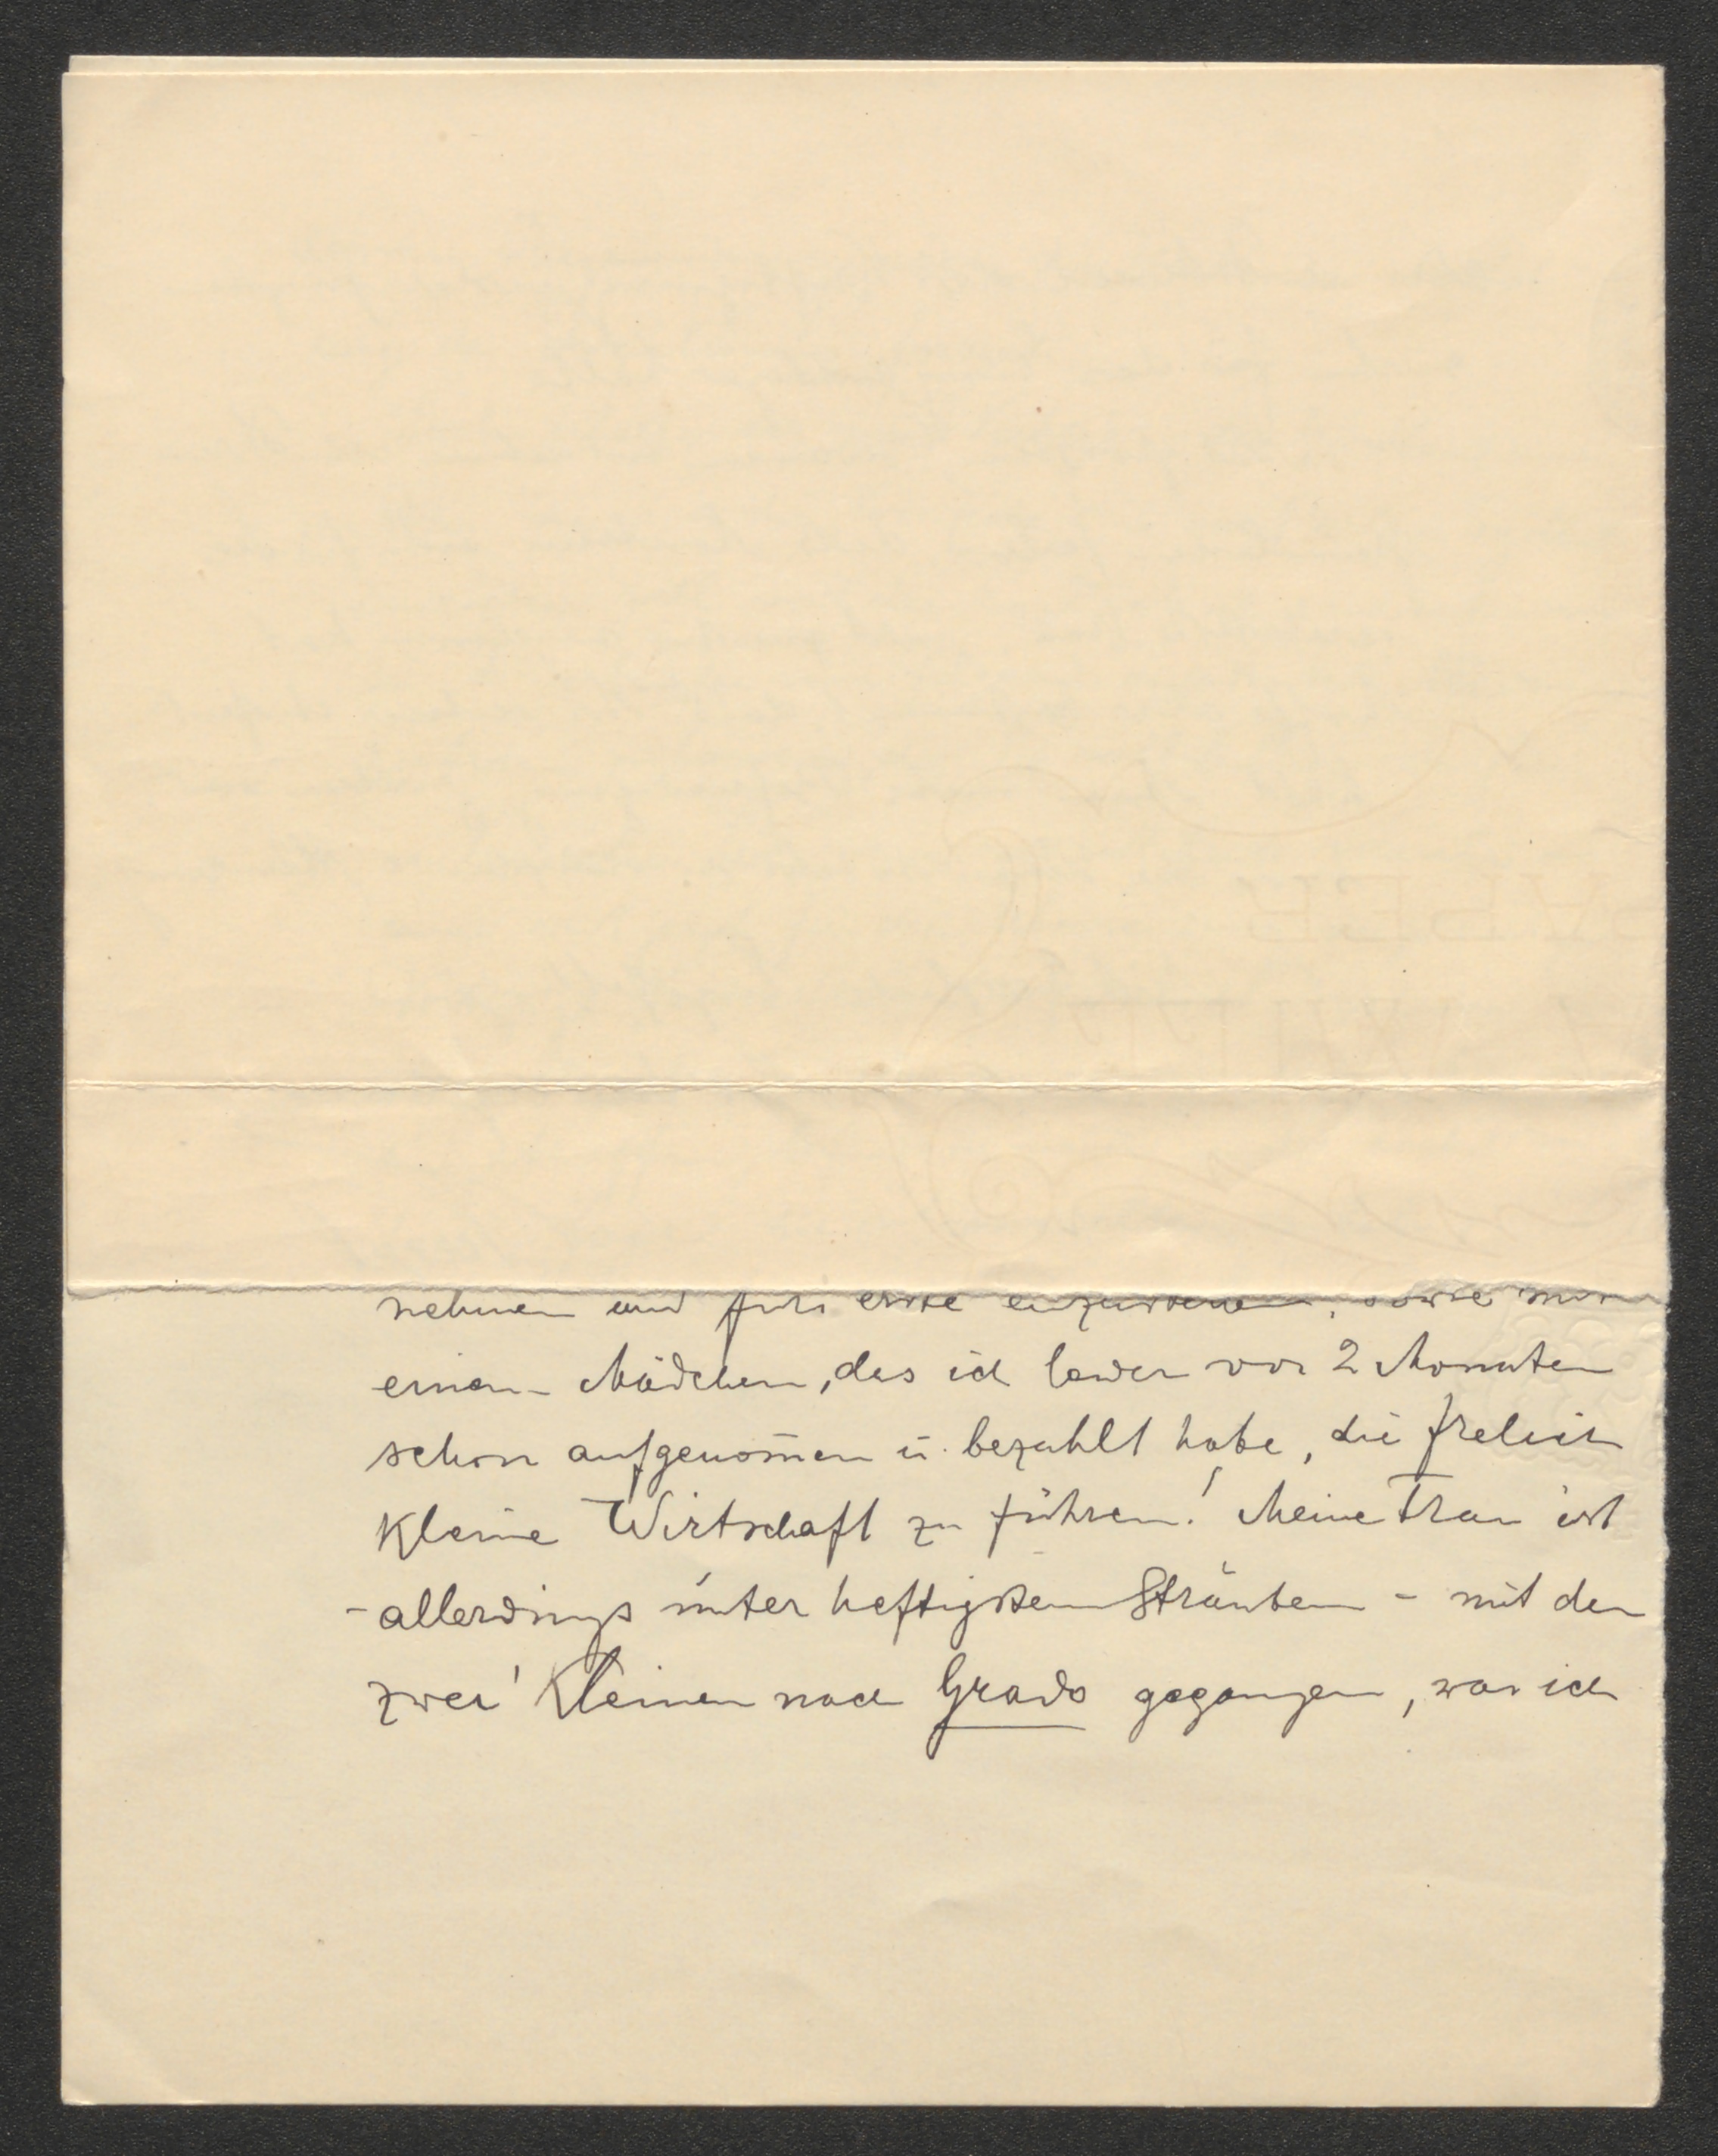 nehmen und fürs erste einzurichten, sowie mit
einem Mädchen, das ich leider vor 2 Monaten
schon aufgenom̄en u. bezahlt habe, die
Kleine Wirtschaft zu führen! Meine Frau ist
- allerdings unter heftigstem Sträuben - mit den
zwei Kleinen nach Grado gegangen, was ich